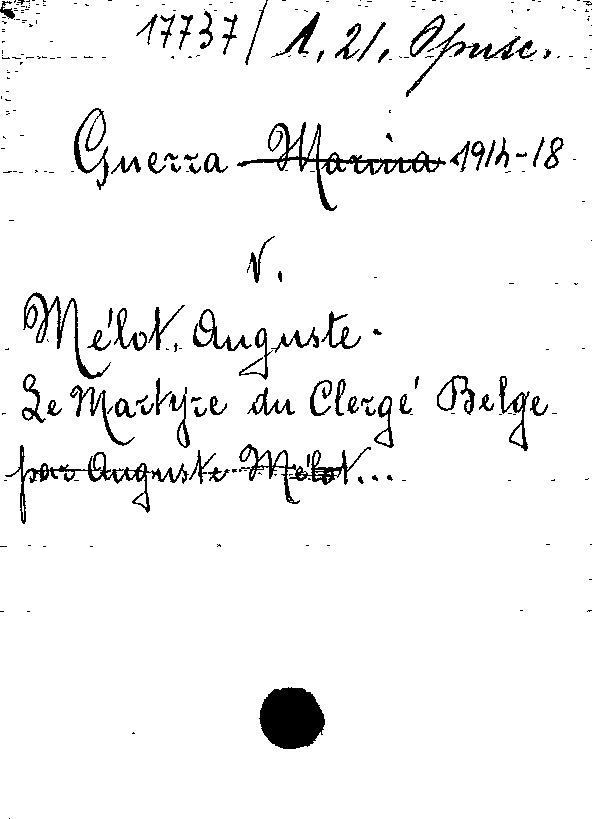 17737/ 1, 21, Opusc.
Guerra Marina 1914-18
V.
Mélot, Auguste.
Le Martyre du Clergé Belge
par Auguste Mélot...